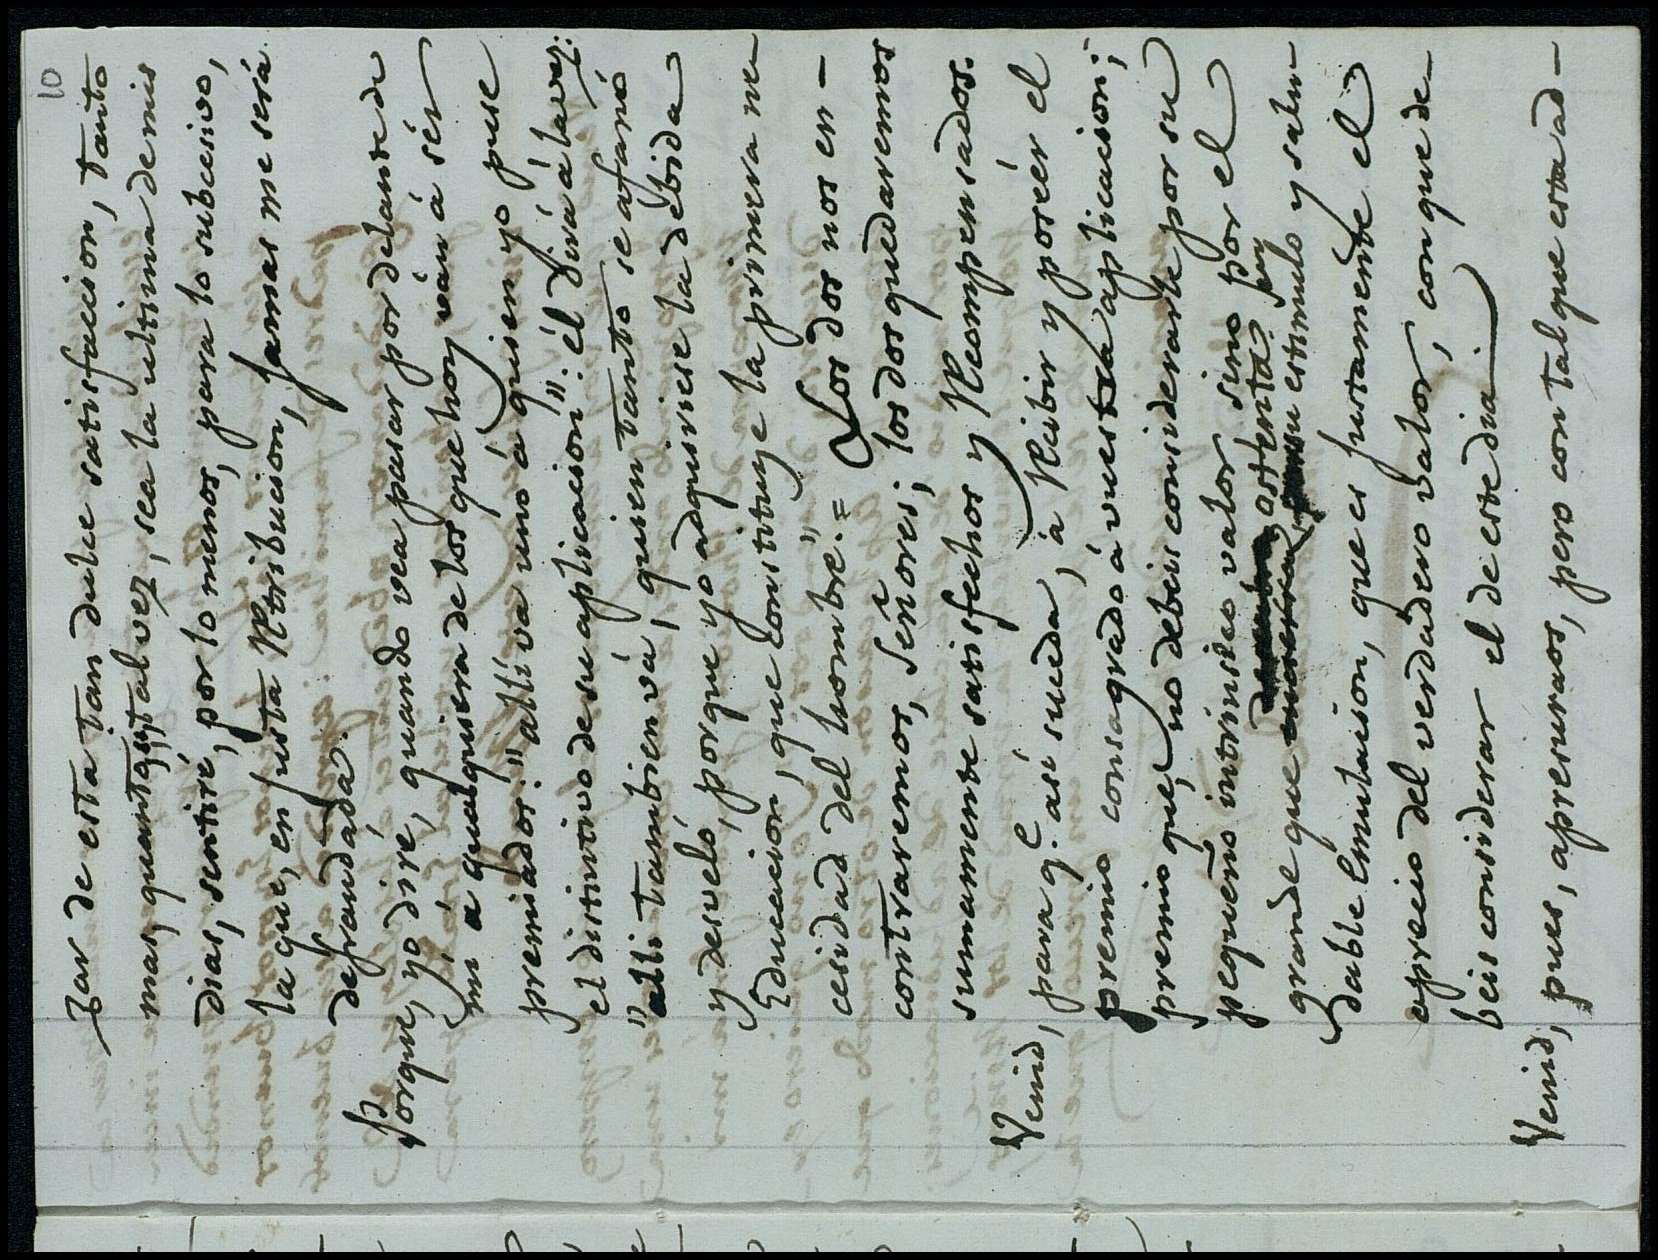 10
zar de esta tan dulce satisfaccion, tanto
mas, quanto, tal vez, sea la ultima de mis
dias, sentiré, por lo menos, para lo subcesivo,
la que, en justa Retribucion, jamas me será
defraudáda.
Porque, yo diré, quando vea pasar por delante de
mi a qualquiera de los que hoy ván á sér
premiados: "allí vá uno á quien yo puse
el distintivo de su aplicacion": él dirá á la vez:
"alli tambien vá, quien tanto se afanó
y desveló, porque yo adquiriese la debida
Educacion, que constituye la primera ne-
cesidad del hombre". = Los dos nos en-
contraremos, Señores; los dos quedaremos
sumamente satisfechos y Recompensados.
Venid, para q.e asi suceda, á Recibir y poseér el
premio consagrado á vuestra aplicacion;
premio que, no debeis considerarle por su
pequeño intrinseco valor sino por el
grande que ostenta: su estimulo y salu-
dable Emulacion, que es justamente el
aprecio del verdádero valor, con que de-
beis considerar el de este dia.
Venid, pues, apresuraos, pero con tal que esta ad-